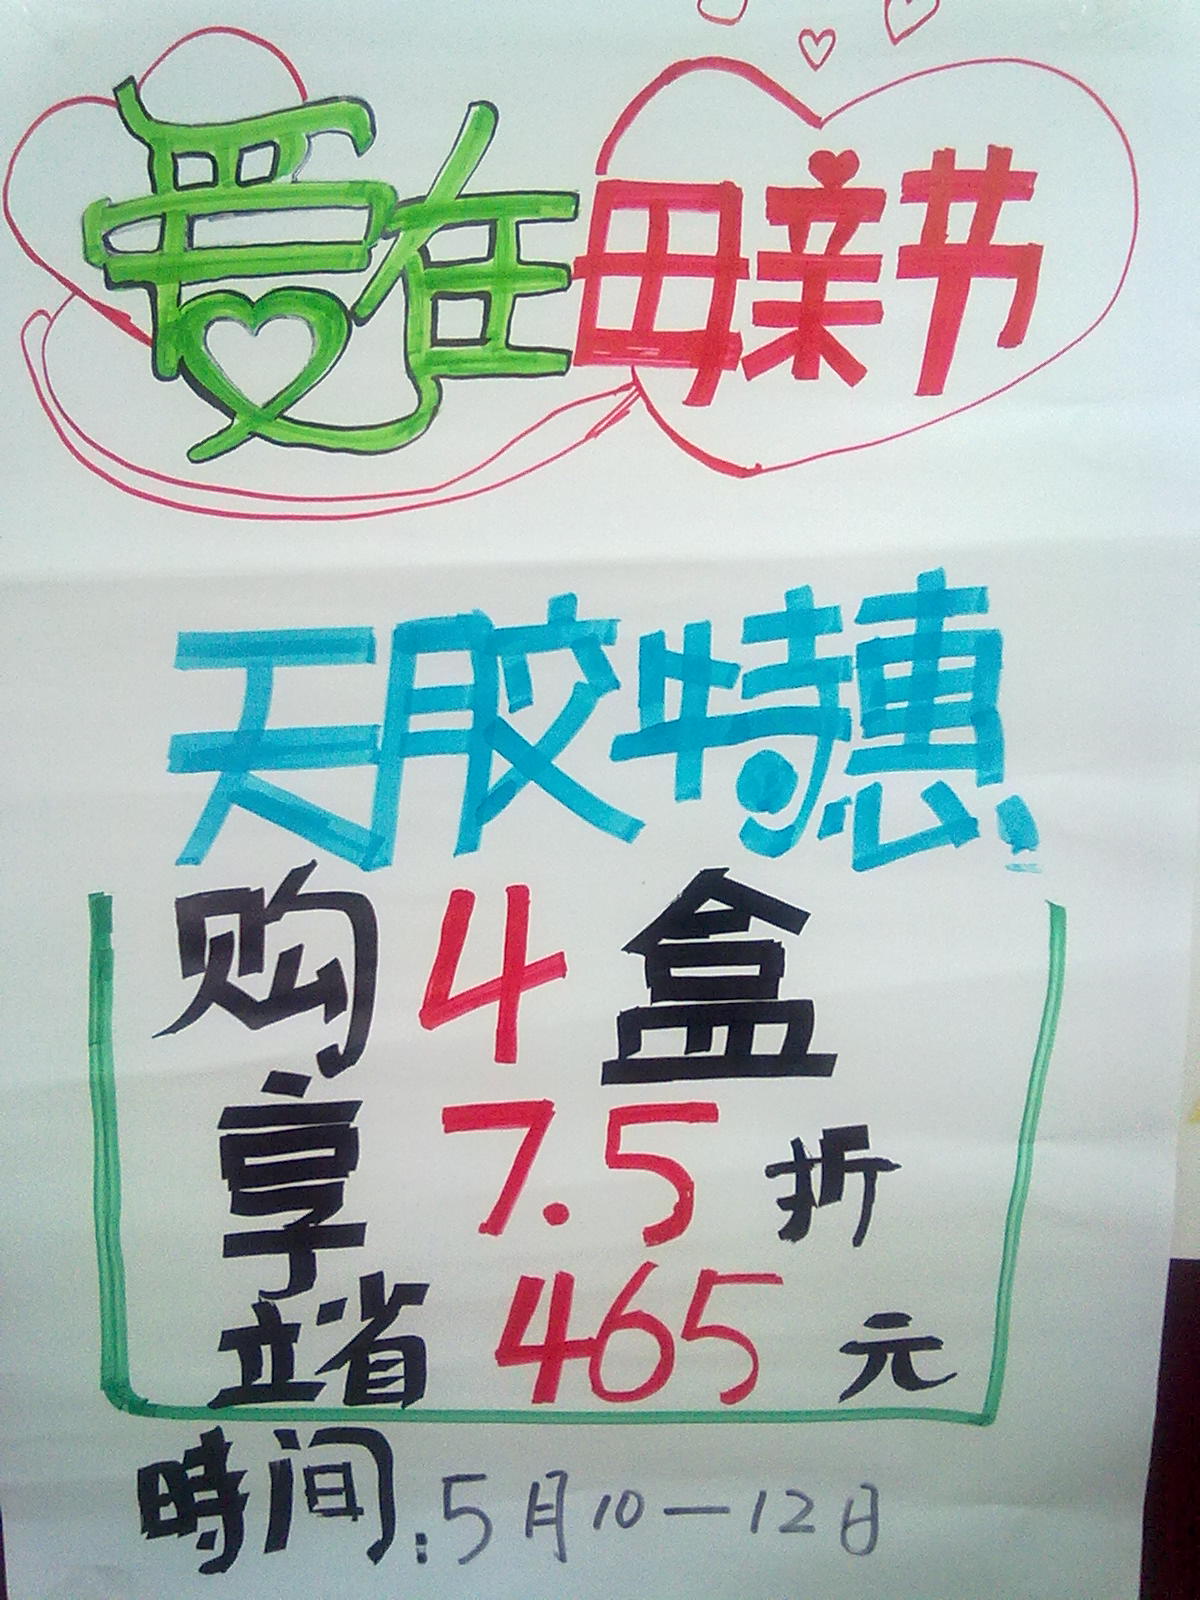 爱在母亲节
天胶特惠
购4盒
享7.5折
立省465元
時间:5月10—12日